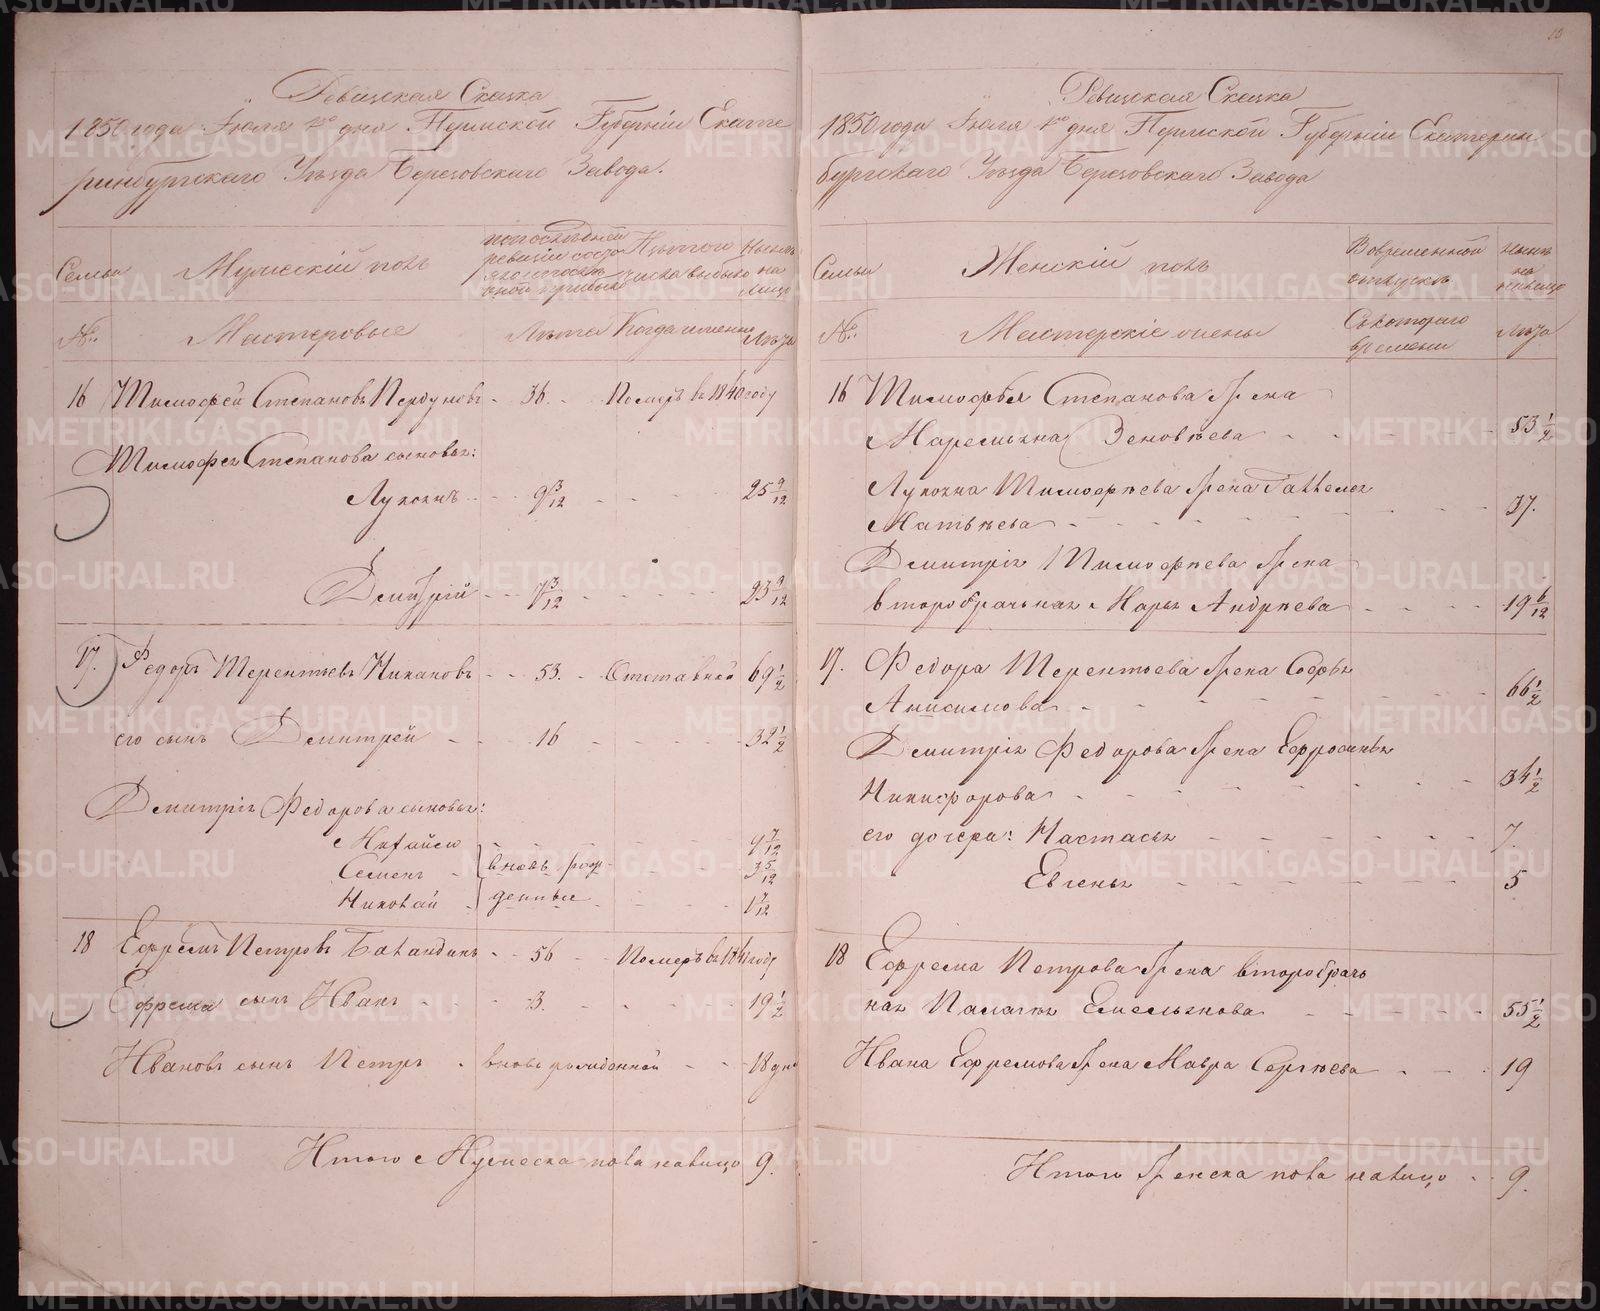 Ревизская Сказка
1850 года Іюля 1го дня Пермской Губерніи Екате
ринбургскаго Уѣзда Березовскаго Завода.
Семьи
Мужескій полъ
по последней ревизіи состо яло
Изъ того числа выбыло
Нынѣ на лицо
№.
Мастеровые
Лѣта
Когда именно
Лѣта
16 Тимофей Степановъ Пердуновъ - 36. - Померъ въ 1840 году
Тимофея Степанова сыновья:
Лукоянъ - 9 3/12 - 25 9/12
Дмитрій - 7 3/12 - 23 9/12
17. Федоръ Терентьевъ Никановъ - 53. - Отставной 69 1/2
его сынъ Дмитрей - 16 - 32 1/2
Дмитрія Федорова сыновья:
Михайло 9 7/12
Семенъ вновь рож 3 5/12
Николай денные 1 7/12
18 Ефремъ Петровъ Баландинъ - 56 - Померъ въ 1841 году
Ефрема сынъ Иванъ - 3. - 19 1/2
Ивановъ сынъ Петръ - вновь рожденной - 18 дне
Итого Мужеска пола налицо 9.
Ревизская Сказка
1850 года Іюля 1го дня Пермской Губерніи Екатерин
бургскаго Уѣзда Березовскаго Завода
Семьи
Женскій полъ
Во временной отлучкѣ
Нынѣ на лицо
№.
Мастерскіе жены
Съ котораго времени
Лѣта
16 Тимофея Степанова Жена
Маремьяна Зеновѣева - 53 1/2
Лукояна Тимофѣева Жена Палтея
Матвѣева - 37.
Дмитрія Тимофѣева Жена
второбрачьная Марья Андрѣева - 19 6/12
17. Федора Терентьева Жена Софья
Анисимова - 66 1/2
Дмитрія Федорова Жена Ефросинья
Никифорова - 34 1/2
его дочери: Настасья - 7.
Евгенья - 5
18 Ефрема Петрова Жена второбрач
ная Палагѣя Емельянова - 55 1/2
Ивана Ефремова Жена Мавра Сергѣева - 19
Итого Женска пола налицо - 9.
METRIKI.GASO-URAL.RU